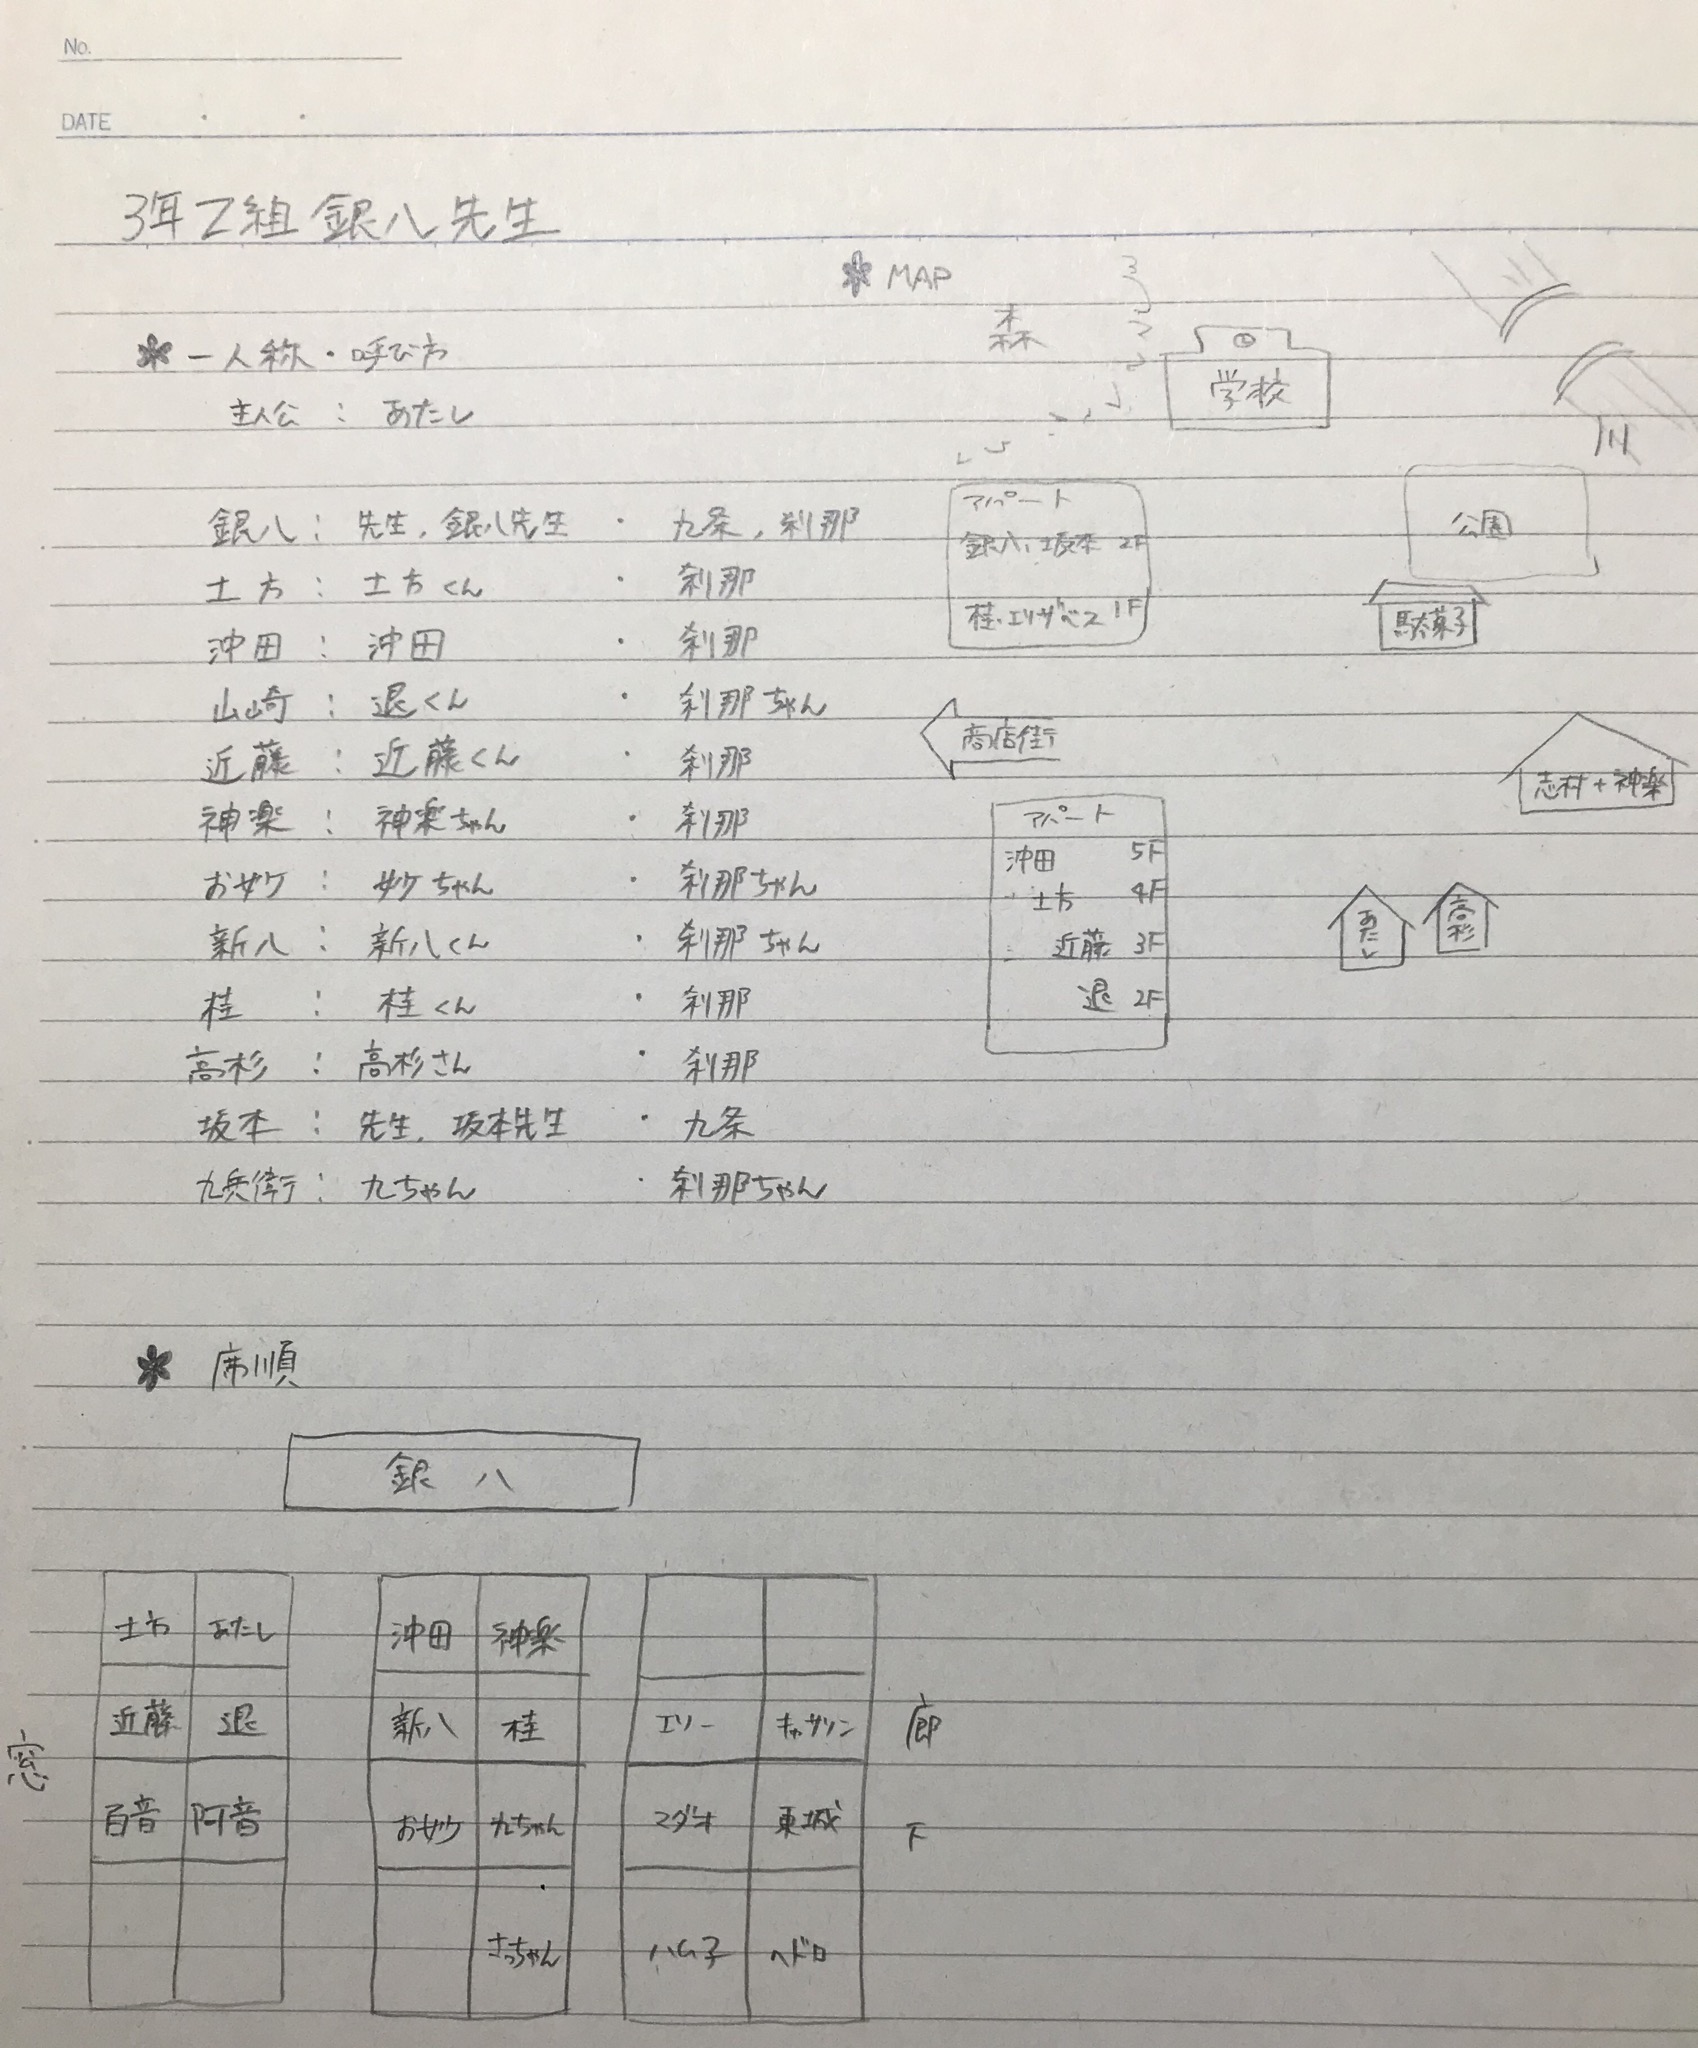 No.
DATE
3年Z組 銀八先生
✽ MAP
✽ 一人称・呼び方
主人公 : あたし
銀八 : 先生, 銀八先生 ・ 九条, 刹那
土方 : 土方くん ・ 刹那
沖田 : 沖田 ・ 刹那
山崎 : 退くん ・ 刹那ちゃん
近藤 : 近藤くん ・ 刹那
神楽 : 神楽ちゃん ・ 刹那
お妙 : 妙ちゃん ・ 刹那ちゃん
新八 : 新八くん ・ 刹那ちゃん
桂 : 桂くん ・ 刹那
高杉 : 高杉さん ・ 刹那
坂本 : 先生, 坂本先生 ・ 九条
九兵衛 : 九ちゃん ・ 刹那ちゃん
森
学校
川
アパート
銀八、坂本 2F
桂・エリザベス 1F
公園
駄菓子
商店街
志村+神楽
アパート
沖田 5F
土方 4F
近藤 3F
退 2F
あたし
高杉
✽ 席順
銀八
土方 あたし 沖田 神楽
近藤 退 新八 桂 エリー キャサリン
百音 阿音 お妙 九ちゃん マダオ 東城
さっちゃん ハム子 ヘドロ
窓
廊下